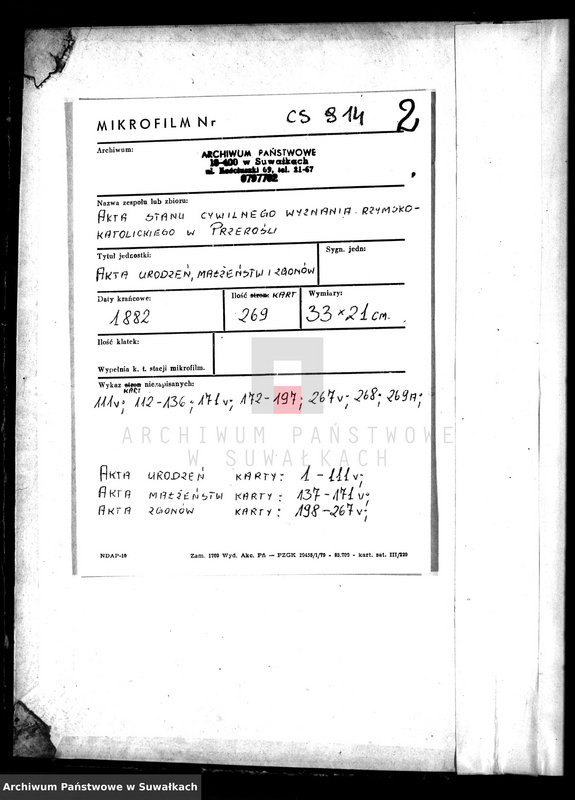 MIKROFILM Nr CS 914 2
Archiwum:
ARCHIWUM PAŃSTWOWE
16-400 w Suwałkach
ul. Kościuszki 69, tel. 21-67
Nazwa zespołu lub zbioru:
AKTA STANU CYWILNEGO WYZNANIA RZYMSKO-
KATOLICKIEGO W PRZEROŚLI
Tytuł jednostki: Sygn. jedn:
AKTA URODZEŃ, MAŁŻEŃSTW I ZGONÓW
Daty krańcowe: Ilość stron: KART Wymiary:
1882 269 33 × 21 cm.
Ilość klatek:
Wypełnia k. t. stacji mikrofilm.
Wykaz stron niezapisanych:
KART
111v; 112-136; 171v; 172-197; 267v; 268; 269A;
ARCHIWUM PAŃSTWOWE
W SUWAŁKACH
AKTA URODZEŃ KARTY: 1-111v;
AKTA MAŁŻEŃSTW KARTY: 137-171v;
AKTA ZGONÓW KARTY: 198-267v;
NDAP-10 Zam. 1700 Wyd. Akc. Pń — PZGK 20458/1/79 - 83.700 - kart. sat. III/220
Archiwum Państwowe w Suwałkach